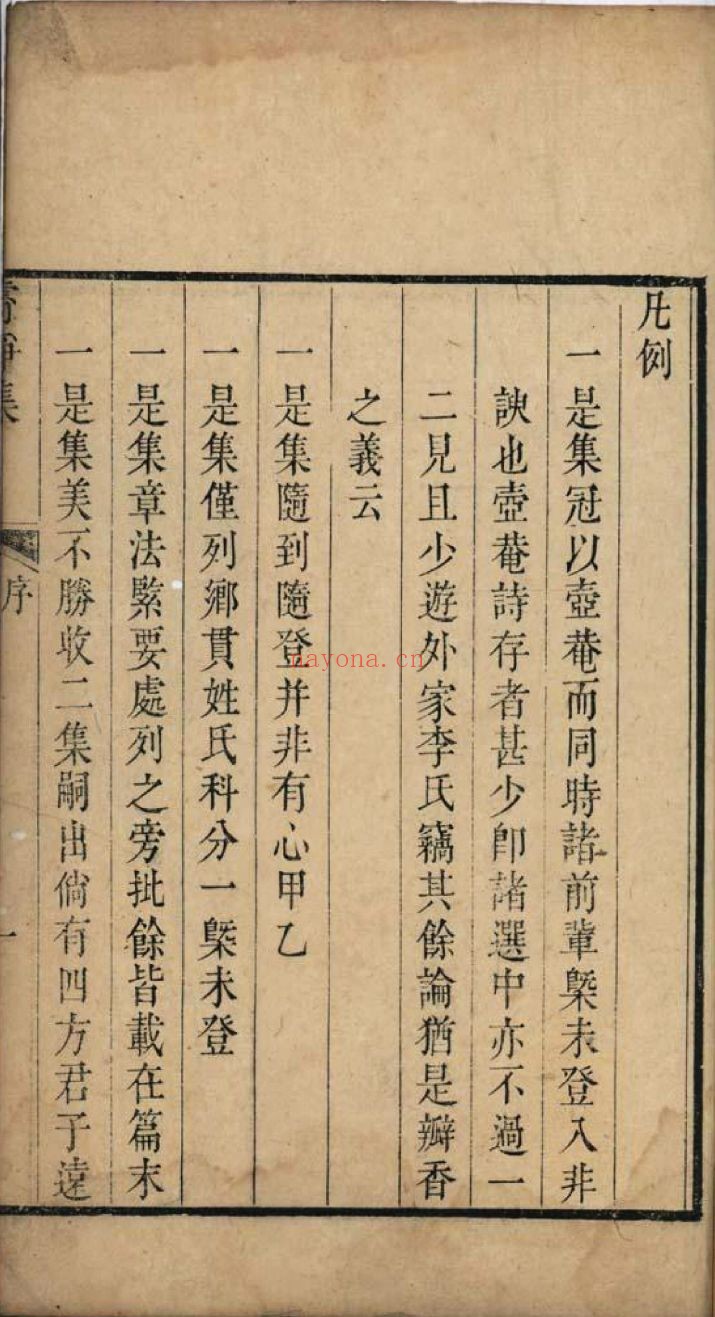 凡例
一是集冠以壺菴而同時諸前輩槩未登入非
諛也壺菴詩存者甚少卽諸選中亦不過一
二見且少遊外家李氏竊其餘論猶是瓣香
之義云
一是集隨到隨登并非有心甲乙
一是集僅列鄉貫姓氏科分一槩未登
一是集章法緊要處列之旁批餘皆載在篇末
一是集美不勝收二集嗣出倘有四方君子遠
集
序
一
nayona.cn